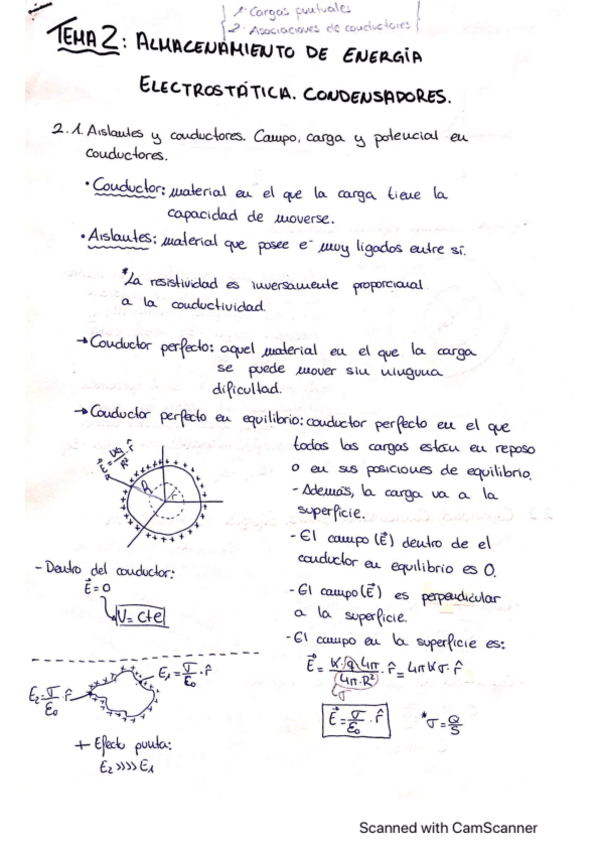 1. Cargas puntuales
2. Asociaciones de conductores
TEMA 2: ALMACENAMIENTO DE ENERGÍA
ELECTROSTÁTICA. CONDENSADORES.
2.1. Aislantes y conductores. Campo, carga y potencial en
conductores.
• Conductor: material en el que la carga tiene la
capacidad de moverse.
• Aislantes: material que posee e⁻ muy ligados entre sí.
*La resistividad es inversamente proporcional
a la conductividad.
→ Conductor perfecto: aquel material en el que la carga
se puede mover sin ninguna
dificultad.
→ Conductor perfecto en equilibrio: conductor perfecto en el que
todas las cargas están en reposo
o en sus posiciones de equilibrio.
- Además, la carga va a la
superficie.
- El campo (E⃗) dentro de el
conductor en equilibrio es 0.
- El campo (E⃗) es perpendicular
a la superficie.
- El campo en la superficie es:
E⃗ = K·q·4π / 4π·R² · r̂ = 4πKσ·r̂
σ
E⃗ = σ/ε₀ · r̂
*σ = Q/S
E⃗ = Kq/R² · r̂
R
r
- Dentro del conductor:
E⃗ = 0
V = cte
E₁ = σ/ε₀ · r̂
E₂ = σ/ε₀ r̂
+ Efecto punta:
E₂ >>>> E₁
Scanned with CamScanner